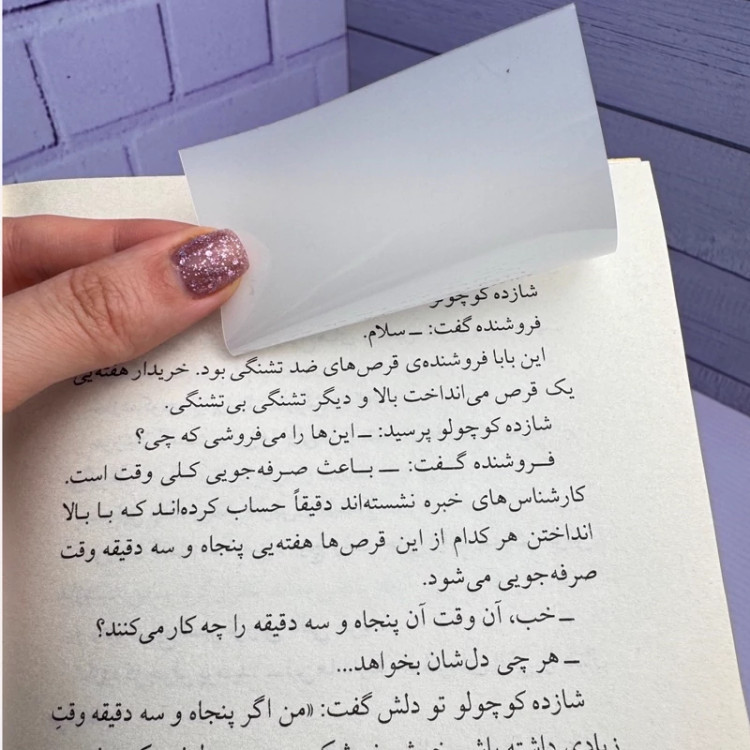 شازده کوچولو
فروشنده گفت: ــ سلام.
این بابا فروشنده‌ی قرص‌های ضد تشنگی بود. خریدار هفته‌یی
یک قرص می‌انداخت بالا و دیگر تشنگی بی‌تشنگی.
شازده کوچولو پرسید: ــ این‌ها را می‌فروشی که چی؟
فـروشنده گـفت: ــ بـاعث صـرفه‌جویی کـلی وقت است.
کارشناس‌های خبره نشسته‌اند دقیقاً حساب کرده‌اند که با بالا
انداختن هر کدام از این قرص‌ها هفته‌یی پنجاه و سه دقیقه وقت
صرفه‌جویی می‌شود.
ــ خب، آن وقت آن پنجاه و سه دقیقه را چه کار می‌کنند؟
ــ هر چی دل‌شان بخواهد...
شازده کوچولو تو دلش گفت: «من اگر پنجاه و سه دقیقه وقتِ
زیادی داشته باشم